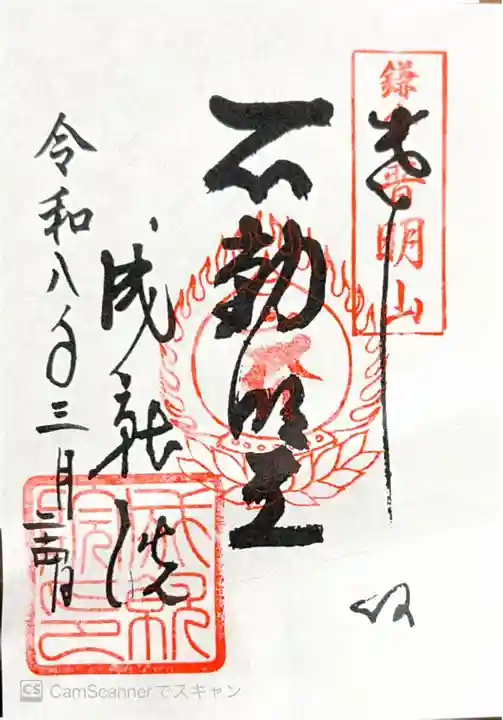 鎌倉普明山
奉
不動明王
成就院
令和八年三月二十四日
成就院印
CS CamScannerでスキャン